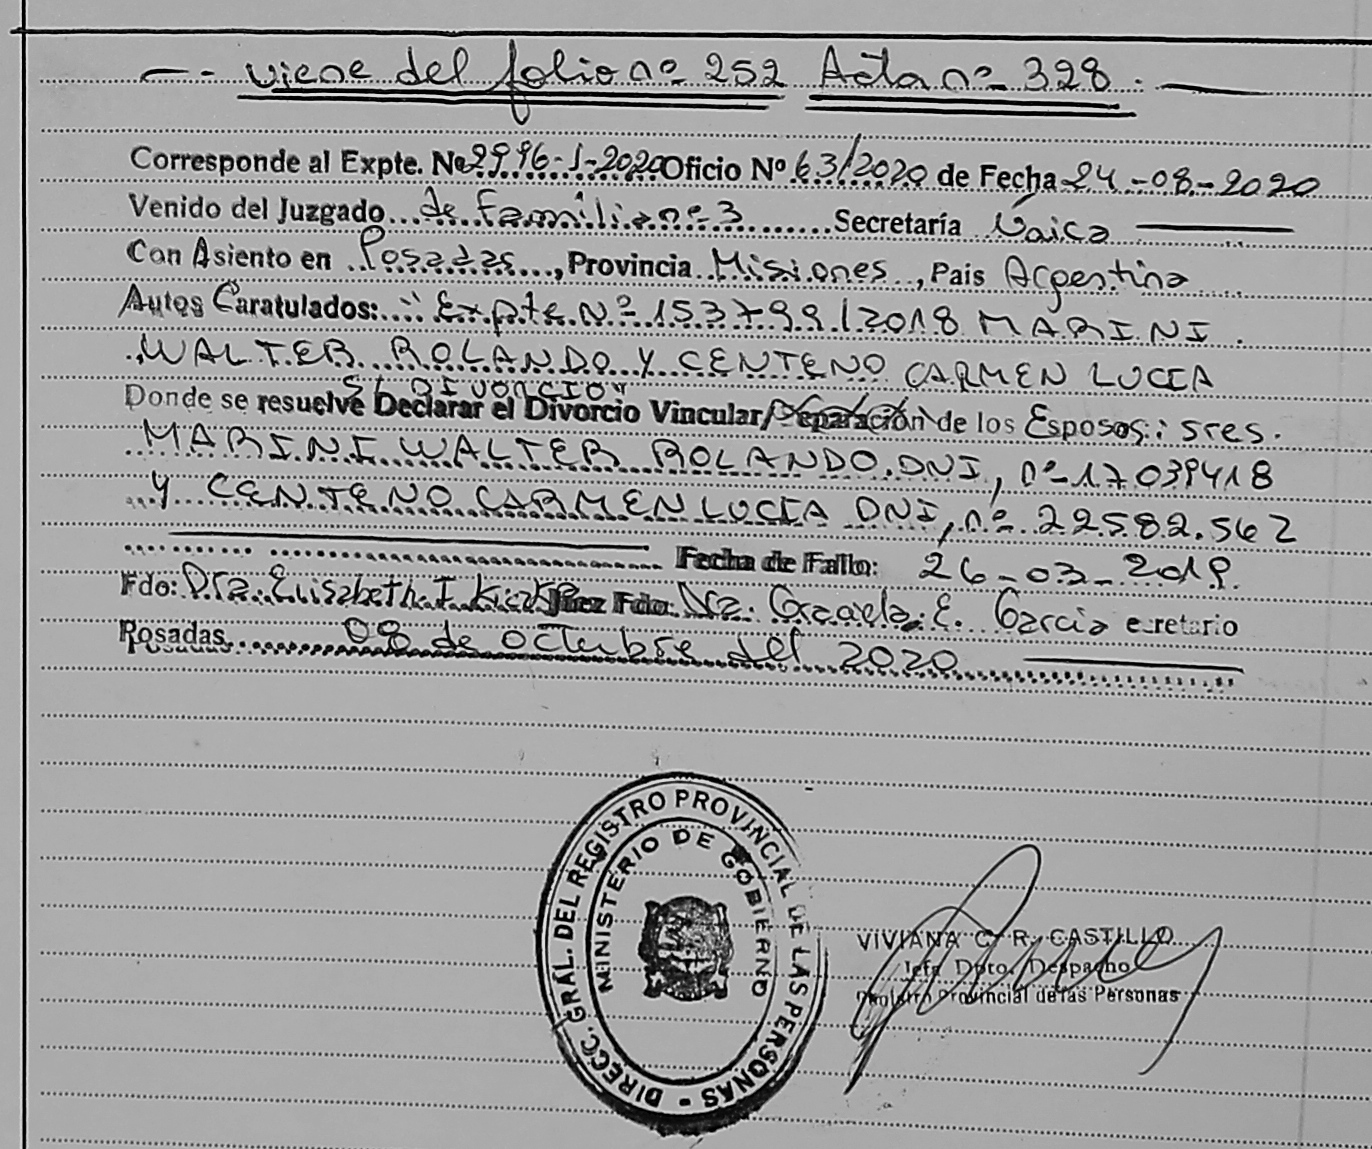 —. viene del folio nº 252 Acta nº 328. —
Corresponde al Expte. Nº 2996-J-2020 Oficio Nº 63/2020 de Fecha 24-08-2020
Venido del Juzgado de Familia nº 3 Secretaría Única —
Con Asiento en Posadas, Provincia Misiones, Pais Argentina
Autos Caratulados: "Expte Nº 153799/2018 MARINI
WALTER ROLANDO Y CENTENO CARMEN LUCIA
S/ DIVORCIO"
Donde se resuelve Declarar el Divorcio Vincular/Separación de los Esposos: sres.
MARINI WALTER ROLANDO. DNI, nº 17039418
Y CENTENO CARMEN LUCIA DNI, nº 22582.562
Fecha de Fallo: 26-03-2019.
Fdo: Dra. Elisabeth I. Juez Fdo: Dra. Graciela E. Garcia ecretario
Posadas 08 de octubre del 2020
DIRECC. GRAL. DEL REGISTRO PROVINCIAL DE LAS PERSONAS -
MINISTERIO DE GOBIERNO
VIVIANA C. R. CASTILLO
Jefa Dpto. Despacho
Registro Provincial de las Personas